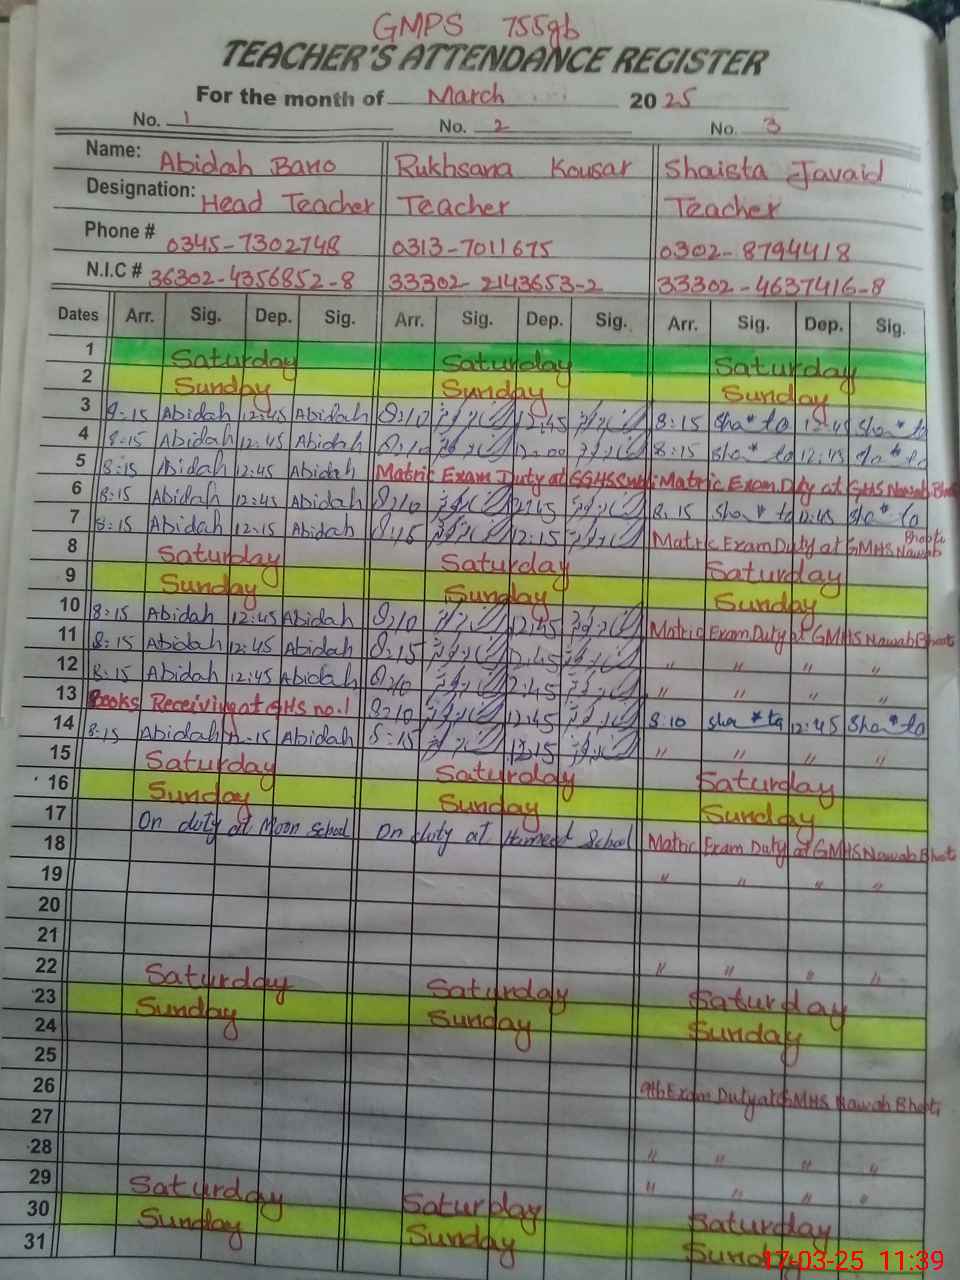 GMPS 755gb
TEACHER'S ATTENDANCE REGISTER
For the month of March 2025
No. 1 No. 2 No. 3
Name: Abidah Bano Rukhsana Kousar Shaista Javaid
Designation: Head Teacher Teacher Teacher
Phone # 0345-7302748 0313-7011675 0302-8794418
N.I.C # 36302-4356852-8 33302-2143653-2 33302-4637416-8
Dates Arr. Sig. Dep. Sig. Arr. Sig. Dep. Sig. Arr. Sig. Dep. Sig.
1 Saturday Saturday Saturday
2 Sunday Sunday Sunday
3 8:15 Abidah 12:45 Abidah 8:10 12:45 8:15 12:45
4 8:15 Abidah 12:45 Abidah 8:10 8:15 12:45
5 8:15 Abidah 12:45 Abidah Matric Exam Duty at Matric Exam Duty at GHS Nawab Bhoti
6 8:15 Abidah 12:45 Abidah 8:10 12:45 8:15 12:45
7 8:15 Abidah 12:15 Abidah 8:15 12:15 Matric Exam Duty at GMHS Nawab Bhoti
8 Saturday Saturday Saturday
9 Sunday Sunday Sunday
10 8:15 Abidah 12:45 Abidah 8:10 12:45 Matric Exam Duty at GMHS Nawab Bhoti
11 8:15 Abidah 12:45 Abidah 8:15 12:45 " " " "
12 8:15 Abidah 12:45 Abidah 8:10 12:45 " " " "
13 Books Receiving at GHS no.1 8:10 12:45 8:10 12:45
14 8:15 Abidah 12:15 Abidah 8:15 12:15 " " " "
15 Saturday Saturday Saturday
16 Sunday Sunday Sunday
17 On duty at Moon School On duty at Hameed School Matric Exam Duty at GMHS Nawab Bhoti
18 " " " "
19
20
21 " " " "
22 Saturday Saturday Saturday
23 Sunday Sunday Sunday
24
25 9th Exam Duty at GMHS Nawab Bhoti
26
27 " " " "
28 " " " "
29 Saturday Saturday Saturday
30 Sunday Sunday Sunday
31
17-03-25 11:39